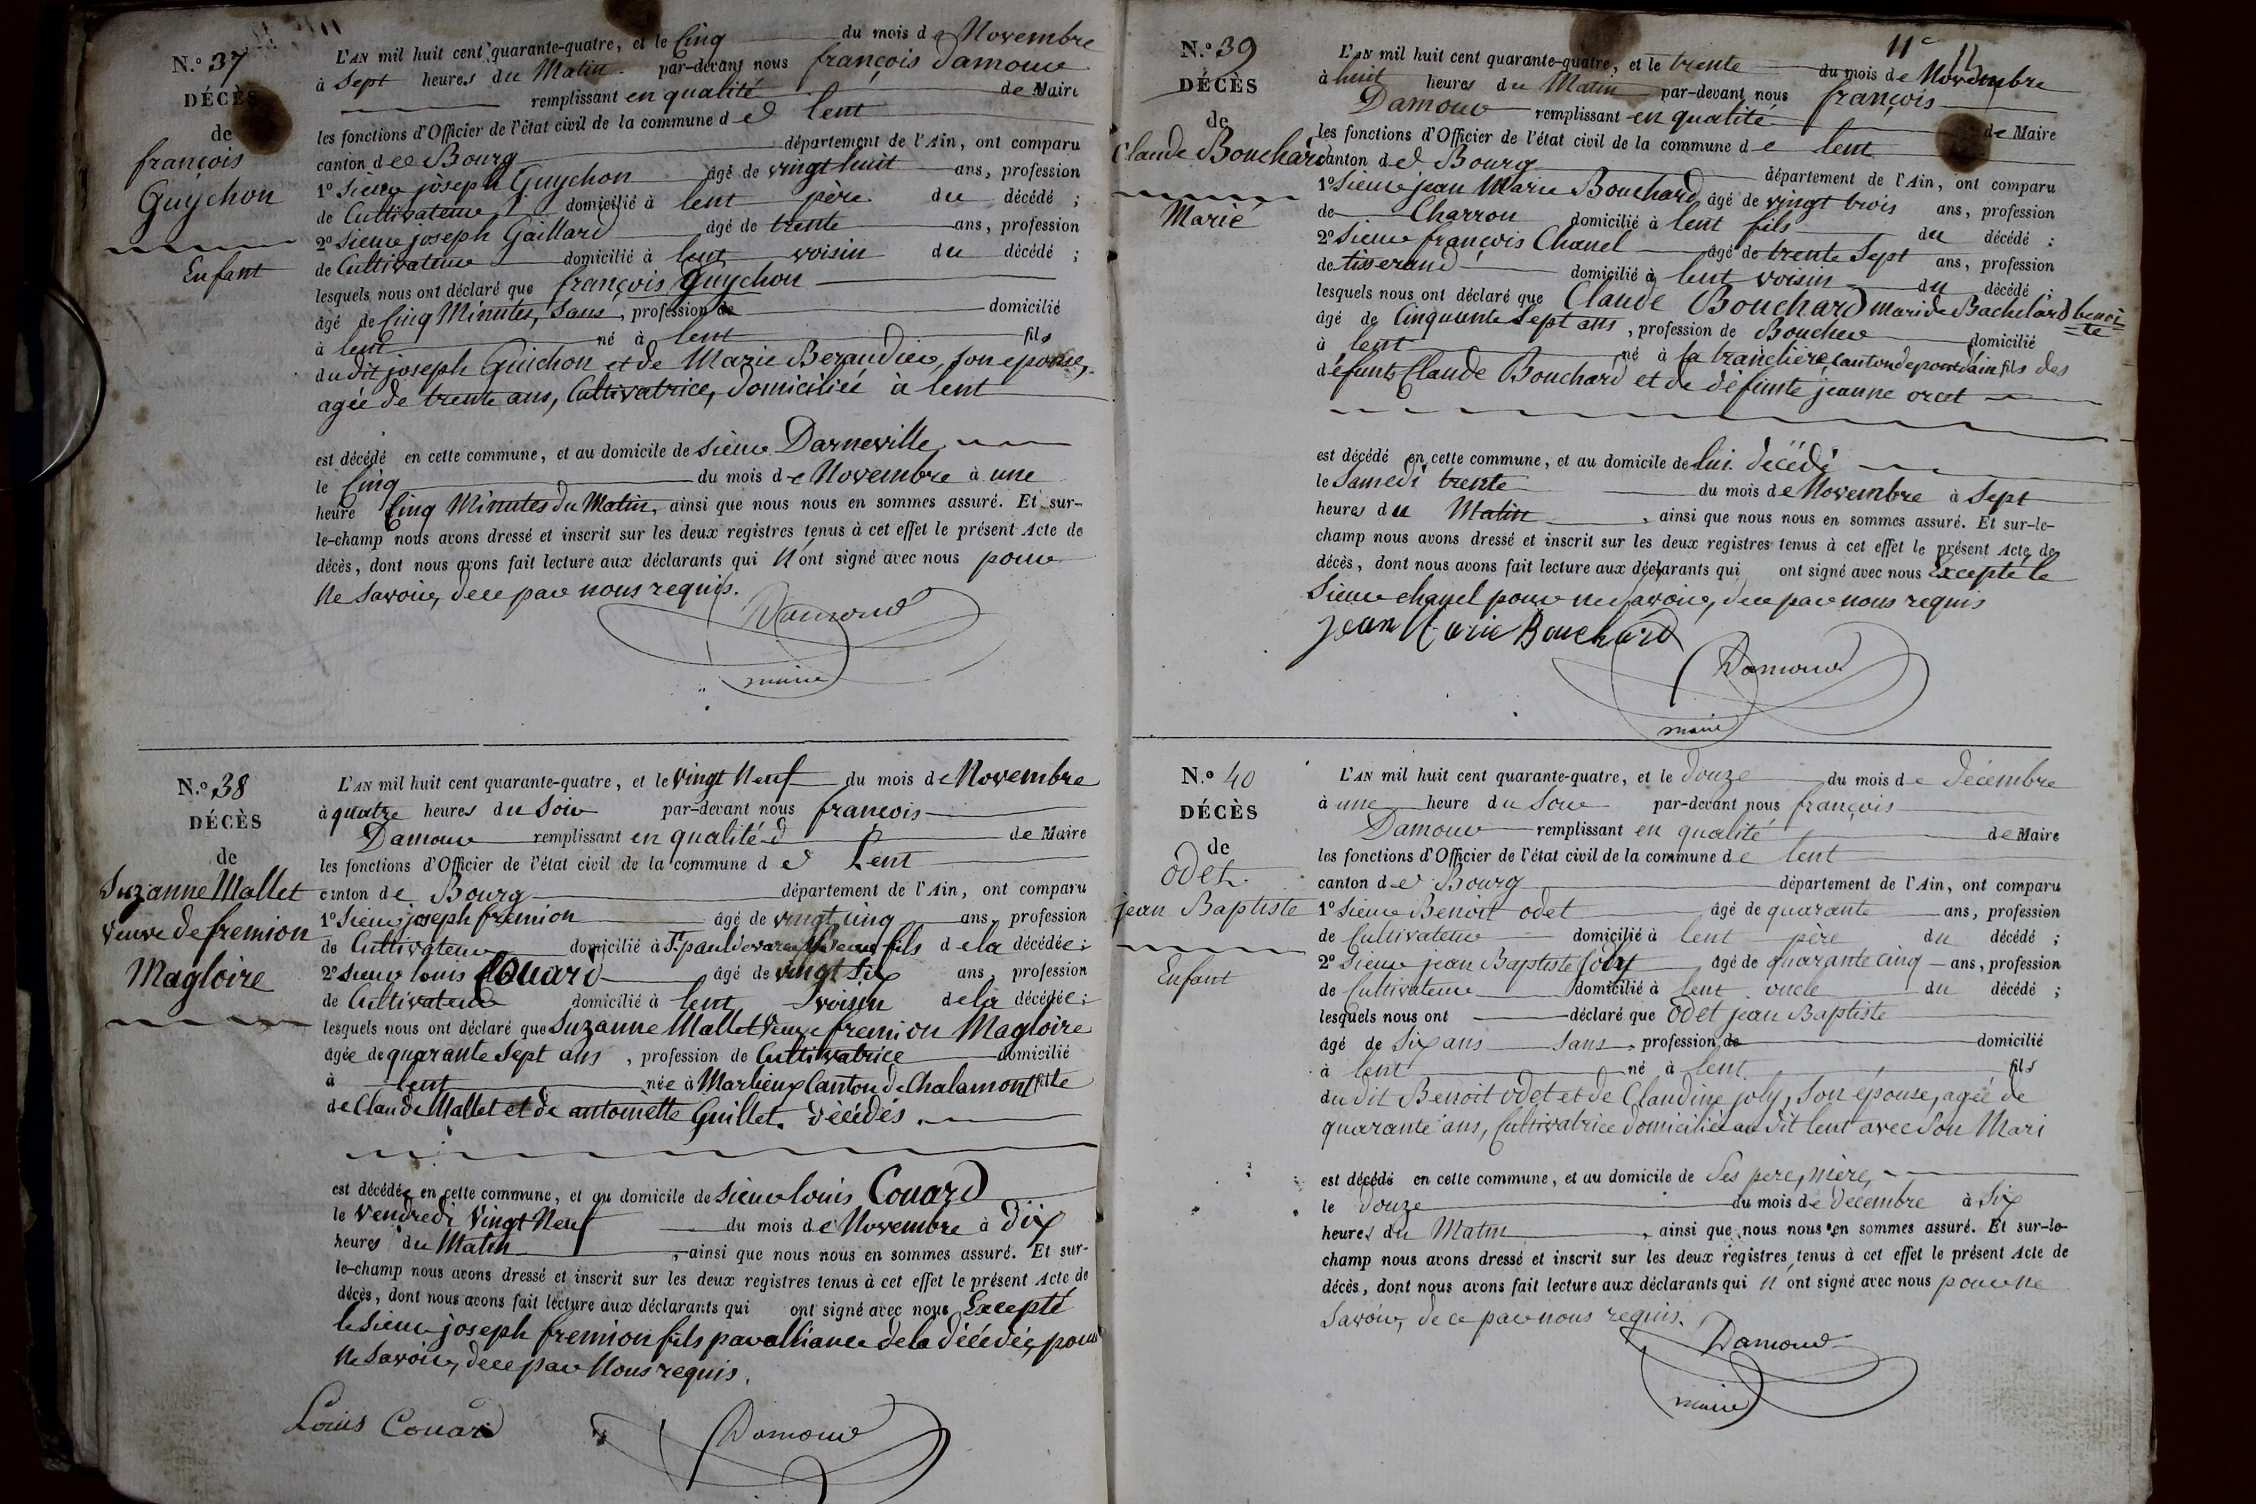 N.o 37
DÉCÈS
de
françois
Guychon
Enfant
L'AN mil huit cent quarante-quatre, et le Cinq du mois de Novembre
à sept heures du Matin par-devant nous françois Damour
remplissant en qualité de Maire
les fonctions d'Officier de l'état civil de la commune de lent
canton de Bourg département de l'Ain, ont comparu
1o Sieur joseph Guychon âgé de vingt huit ans, profession
de Cultivateur domicilié à lent père du décédé ;
2o Sieur joseph Gaillard âgé de trente ans, profession
de Cultivateur domicilié à lent voisin du décédé ;
lesquels nous ont déclaré que françois Guychon
âgé de Cinq Minutes, Sans, profession de domicilié
à lent né à lent fils
du dit joseph Guichon et de Marie Beraudier, son epouse,
agée de trente ans, Cultivatrice, domiciliée à lent
est décédé en cette commune, et au domicile de sieur Darneville
le Cinq du mois de Novembre à une
heure Cinq Minutes du Matin, ainsi que nous nous en sommes assuré. Et sur-
le-champ nous avons dressé et inscrit sur les deux registres tenus à cet effet le présent Acte de
décès, dont nous avons fait lecture aux déclarants qui N'ont signé avec nous pour
Ne Savoir, de ce par nous requis.
Damour
maire
N.o 38
DÉCÈS
de
Suzanne Mallet
veuve de fremion
Magloire
L'AN mil huit cent quarante-quatre, et le Vingt Neuf du mois de Novembre
à quatre heures du Soir par-devant nous françois
Damour remplissant en qualité de Maire
les fonctions d'Officier de l'état civil de la commune de Lent
canton de Bourg département de l'Ain, ont comparu
1o Sieur joseph fremion âgé de vingt cinq ans, profession
de Cultivateur domicilié à St. paul de varax fils de la décédée ;
2o Sieur louis Couard âgé de vingt Six ans, profession
de Cultivateur domicilié à lent voisin de la décédée ;
lesquels nous ont déclaré que Suzanne Mallet Veuve fremion Magloire
âgée de quarante Sept ans, profession de Cultivatrice domicilié
à lent née à Marlieux Canton de Chalamont fille
de Claude Mallet et de antoinette Guillet. Décédés.
est décédée en cette commune, et au domicile de sieur louis Couard
le Vendredi Vingt Neuf du mois de Novembre à Dix
heures du Matin, ainsi que nous nous en sommes assuré. Et sur-
le-champ nous avons dressé et inscrit sur les deux registres tenus à cet effet le présent Acte de
décès, dont nous avons fait lecture aux déclarants qui ont signé avec nous Excepté
le Sieur joseph fremion fils par alliance de la Décédée, pour
Ne Savoir, de ce par Nous requis.
Louis Couard Damour
N.o 39
DÉCÈS
de
Claude Bouchard
Marié
11
L'AN mil huit cent quarante-quatre, et le trente du mois de Novembre
à huit heures du Matin par-devant nous françois
Damour remplissant en qualité de Maire
les fonctions d'Officier de l'état civil de la commune de lent
canton de Bourg département de l'Ain, ont comparu
1o Sieur jean Marie Bouchard âgé de vingt trois ans, profession
de Charron domicilié à lent fils du décédé ;
2o Sieur françois Chanel âgé de trente Sept ans, profession
de tisserand domicilié à lent voisin du décédé ;
lesquels nous ont déclaré que Claude Bouchard mari de Bachelard benoi-
te
âgé de Cinquante Sept ans, profession de Boucher domicilié
à lent né à la tranclière, canton de pont d'ain fils des
défunts Claude Bouchard et de défunte jeanne orcet
est décédé en cette commune, et au domicile de lui décédé
le Samedi trente du mois de Novembre à Sept
heures du Matin, ainsi que nous nous en sommes assuré. Et sur-le-
champ nous avons dressé et inscrit sur les deux registres tenus à cet effet le présent Acte de
décès, dont nous avons fait lecture aux déclarants qui ont signé avec nous Excepté le
Sieur chanel pour ne Savoir, de ce par nous requis
jean Marie Bouchard
Damour
maire
N.o 40
DÉCÈS
de
odet
jean Baptiste
Enfant
L'AN mil huit cent quarante-quatre, et le Douze du mois de Décembre
à une heure du Soir par-devant nous françois
Damour remplissant en qualité de Maire
les fonctions d'Officier de l'état civil de la commune de lent
canton de Bourg département de l'Ain, ont comparu
1o Sieur Benoit odet âgé de quarante ans, profession
de Cultivateur domicilié à lent père du décédé ;
2o Sieur jean Baptiste Joly âgé de quarante cinq ans, profession
de Cultivateur domicilié à lent oncle du décédé ;
lesquels nous ont déclaré que odet jean Baptiste
âgé de Six ans Sans, profession de domicilié
à lent né à lent fils
du dit Benoit odet et de Claudine joly, Son épouse, agée de
quarante ans, Cultivatrice domiciliée au dit lent avec Son Mari
est décédé en cette commune, et au domicile de Ses pere, mère,
le Douze du mois de Decembre à Six
heures du Matin, ainsi que nous nous en sommes assuré. Et sur-le-
champ nous avons dressé et inscrit sur les deux registres tenus à cet effet le présent Acte de
décès, dont nous avons fait lecture aux déclarants qui N'ont signé avec nous pour Ne
Savoir, de ce par nous requis.
Damour
maire